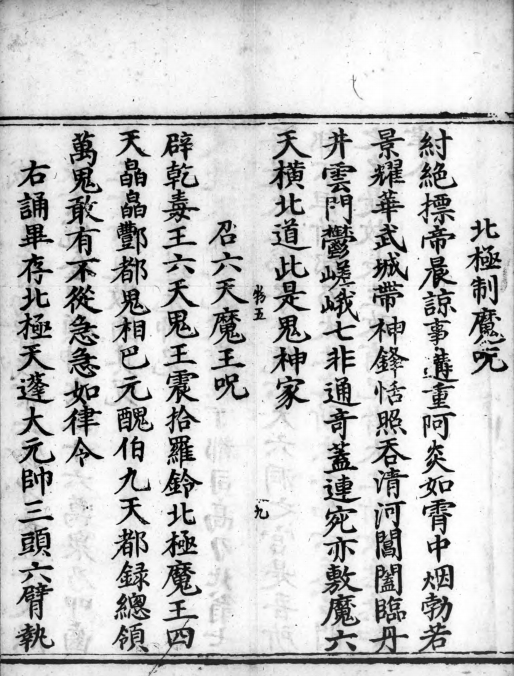 北極制魔咒
紂絕摽帝晨諒事遘重阿炎如霄中烟勃若
景耀華武城帶神鋒恬照吞清河閶闔臨丹
井雲門鬱嵯峨七非通竒蓋連宛亦敷魔六
天橫北道此是鬼神家
召六天魔王咒
辟乾毒王六天鬼王震拾羅鈴北極魔王四
天皛皛酆都鬼相巴元醜伯九天都録總領
萬鬼敢有不從急急如律令
右誦畢存北極天蓬大元帥三頭六臂執